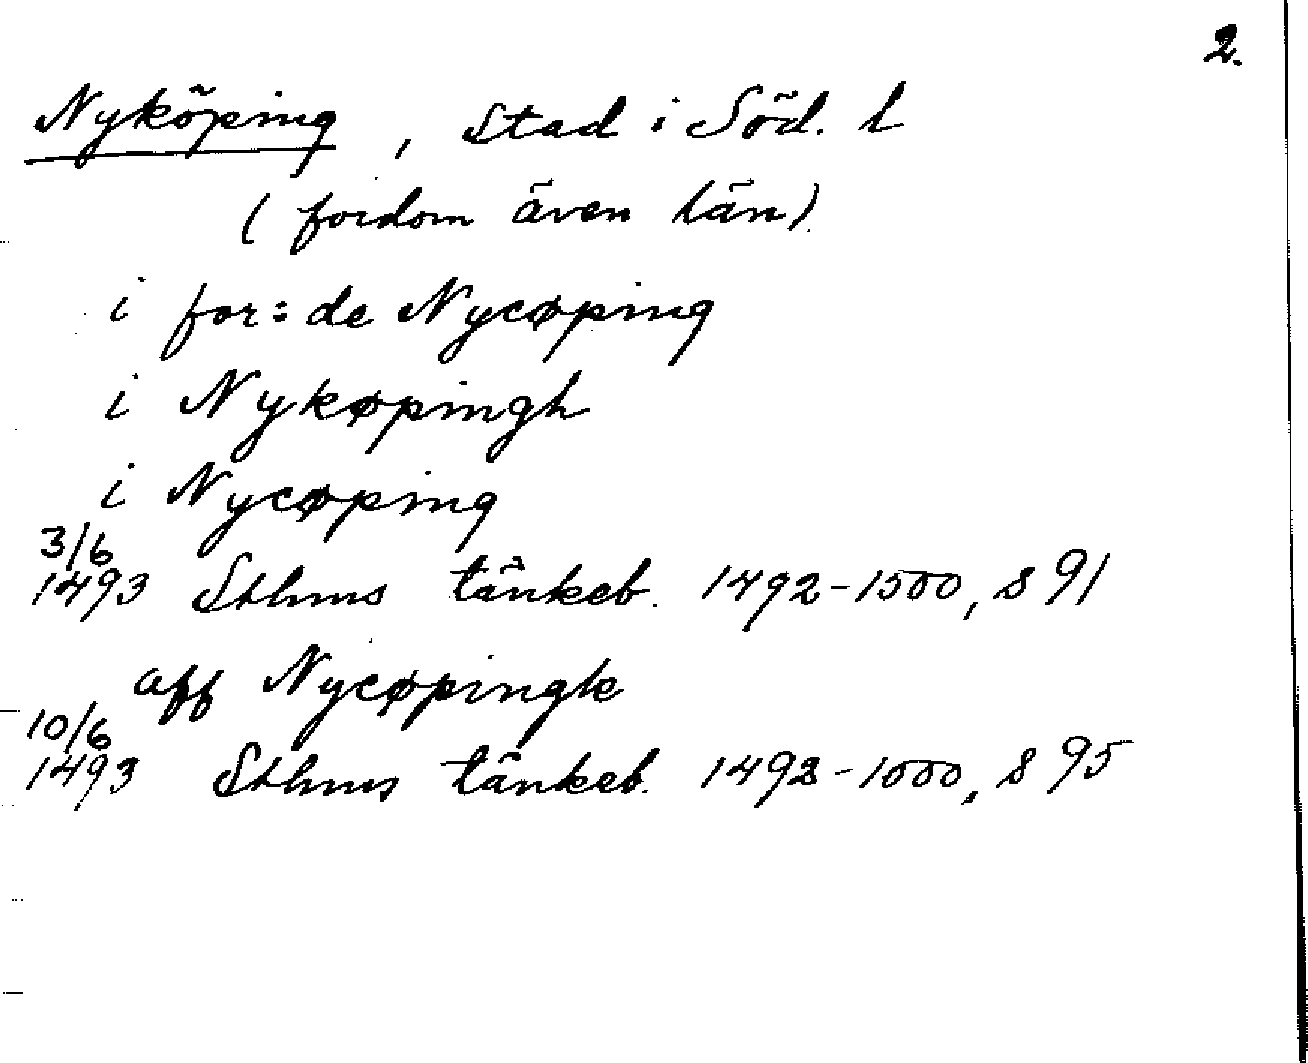 2.
Nyköping, stad i Söd. l
(fordom även län)
i for:de Nycøping
i Nykøpingh
i Nycøping
3/6
1493 Sthms tänkeb. 1492-1500, s 91
aff Nycøpingk
10/6
1493 Sthms tänkeb. 1492-1000, s 95